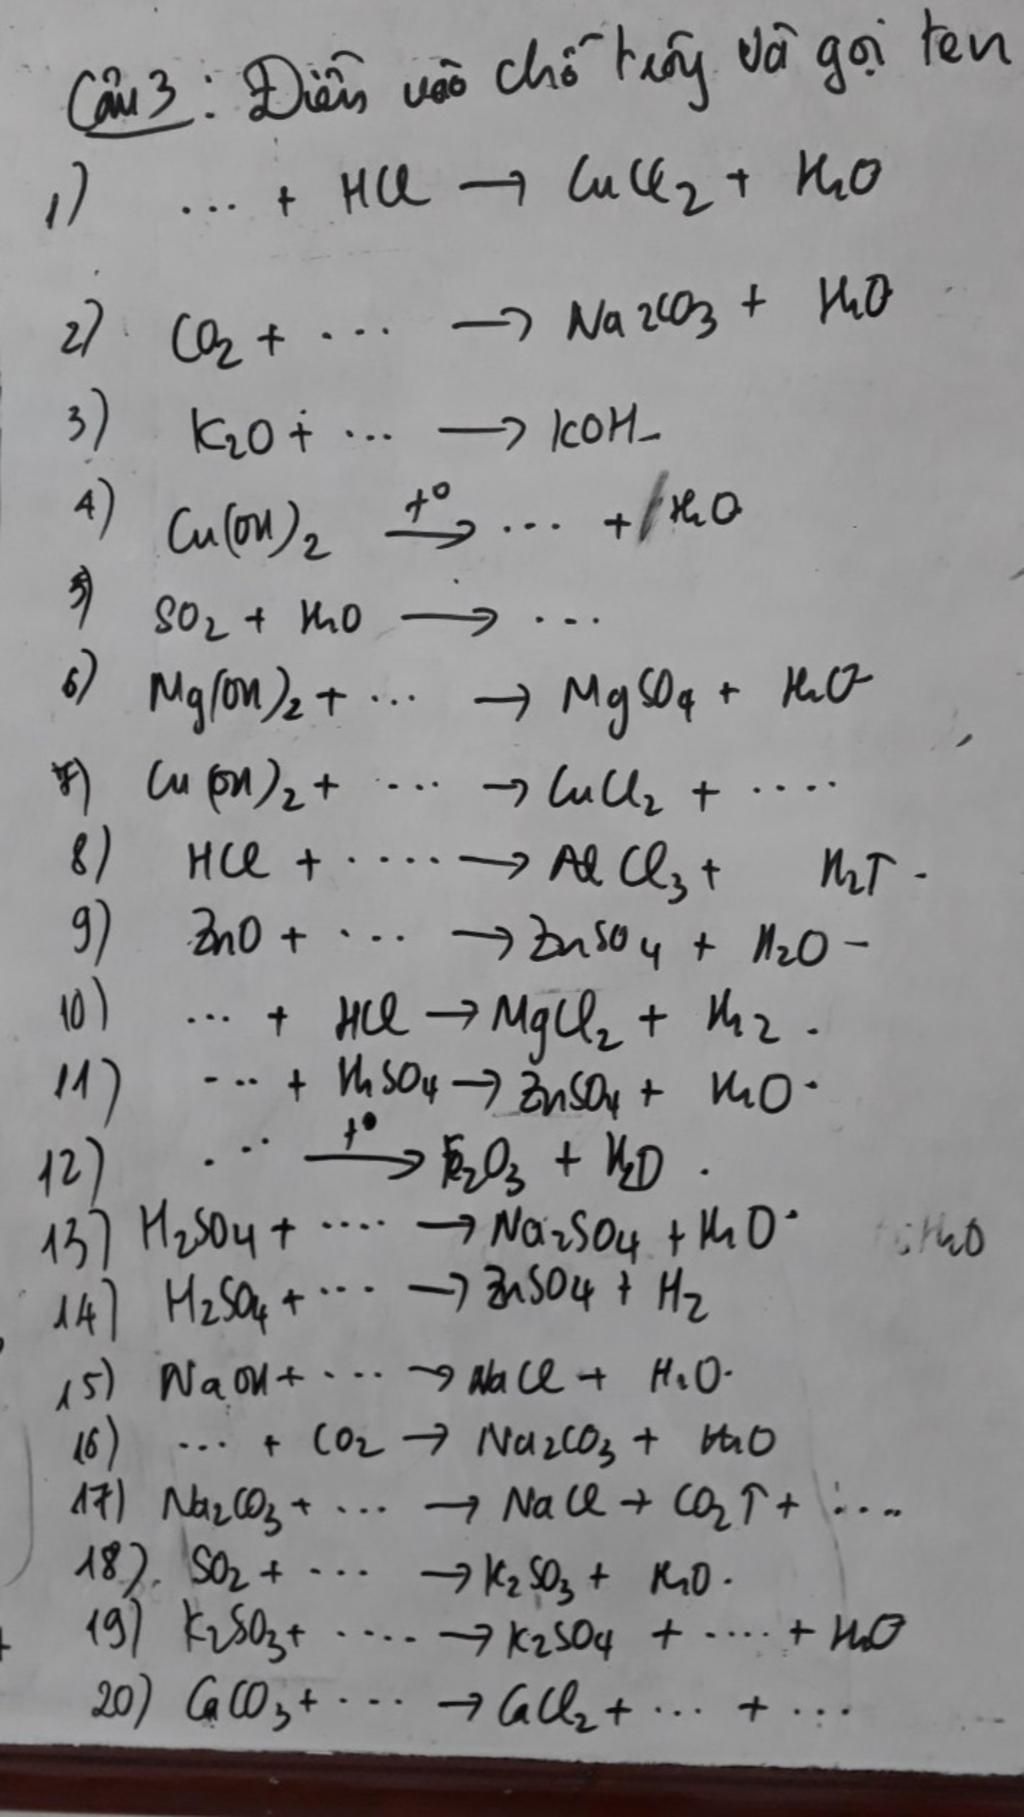 Câu 3: Điền vào chỗ trống và gọi tên
1) ... + HCl → CuCl2 + H2O
2) CO2 + .... → Na2CO3 + H2O
3) K2O + ... → KOH
4) Cu(OH)2 t° → ... + H2O
5) SO2 + H2O → ...
6) Mg(OH)2 + ... → MgSO4 + H2O
7) Cu(OH)2 + ... → CuCl2 + ....
8) HCl + ..... → AlCl3 + H2↑
9) ZnO + .... → ZnSO4 + H2O
10) ... + HCl → MgCl2 + H2.
11) ... + H2SO4 → ZnSO4 + H2O.
12) ... t° → Fe2O3 + H2O.
13) H2SO4 + .... → Na2SO4 + H2O.
14) H2SO4 + .... → ZnSO4 + H2
15) NaOH + .... → NaCl + H2O.
16) ... + CO2 → Na2CO3 + H2O
17) Na2CO3 + ... → NaCl + CO2↑ + ....
18) SO2 + ... → K2SO3 + H2O.
19) K2SO3 + ..... → K2SO4 + .... + H2O
20) CaCO3 + .... → CaCl2 + ... + ...